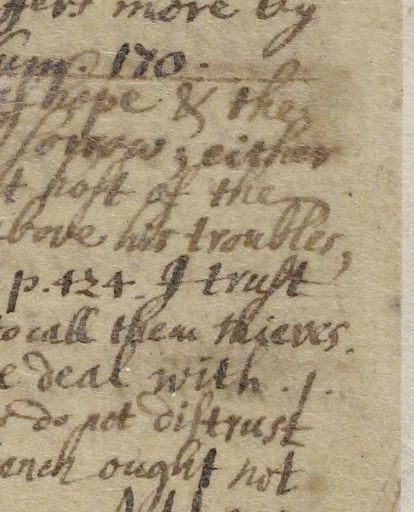 more by
170.
hope & the
sorrow, either
host of the
above his troubles,
p. 424. I trust
to call them thieves.
deal with . / .
do not distrust
ought not